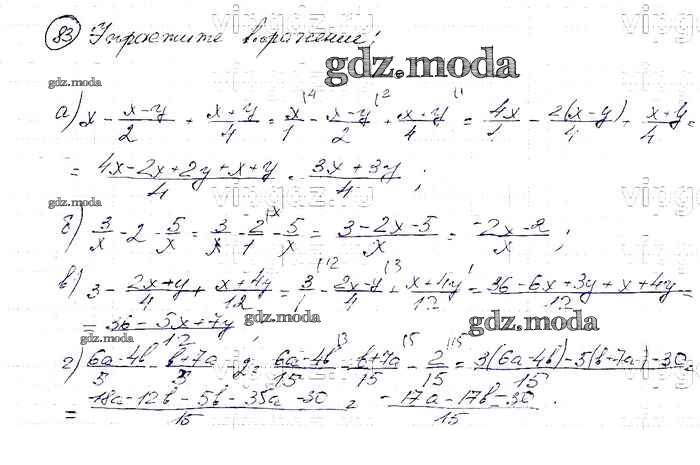 83 Упростите выражение:
gdz.moda
gdz.moda
а) x - \frac{x-y}{2} + \frac{x+y}{4} = \frac{x}{1} - \frac{x-y}{2} + \frac{x+y}{4} = \frac{4x}{4} - \frac{2(x-y)}{4} + \frac{x+y}{4} =
= \frac{4x-2x+2y+x+y}{4} = \frac{3x+3y}{4};
gdz.moda
б) \frac{3}{x} - 2 - \frac{5}{x} = \frac{3}{x} - \frac{2}{1} - \frac{5}{x} = \frac{3-2x-5}{x} = \frac{-2x-2}{x};
в) 3 - \frac{2x+y}{4} + \frac{x+4y}{12} = \frac{3}{1} - \frac{2x-y}{4} + \frac{x+4y}{12} = \frac{36-6x+3y+x+4y}{12} =
= \frac{36-5x+7y}{12};
gdz.moda
gdz.moda
gdz.moda
г) \frac{6a-4b}{5} - \frac{b+7a}{3} - 2 = \frac{6a-4b}{15} - \frac{b+7a}{15} - \frac{2}{15} = \frac{3(6a-4b)-5(b+7a)-30}{15} =
= \frac{18a-12b-5b-35a-30}{15} = \frac{-17a-17b-30}{15}.